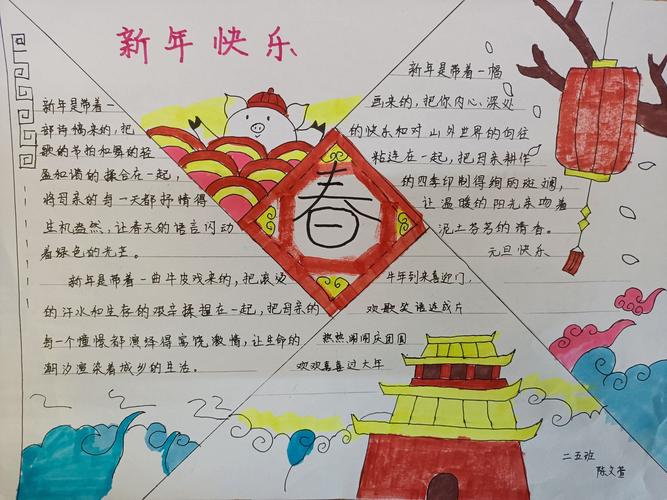 新年快乐
新年是带着一
部诗情来的，把
歌的节拍和舞的轻
盈和谐的揉合在一起，
将母亲的每一天都抒情得
生机盎然，让春天的语言闪动
着绿色的光芒。
新年是带着一曲牛皮戏来的，把滚烫
的汗水和生存的艰辛揉捏在一起，把母亲的
每一个憧憬都演绎得富饶激情，让生命的
潮汐渲染着城乡的生活。
春
新年是带着一幅
画来的，把你内心深处
的快乐和对山外世界的向往
粘连在一起，把母亲耕作
的四季印制得绚丽斑斓，
让温暖的阳光亲吻着
泥土芬芳的清香。
元旦快乐
牛年到来喜迎门，
欢歌笑语连成片
热热闹闹庆团圆
欢欢喜喜过大年
二五班
陈文萱